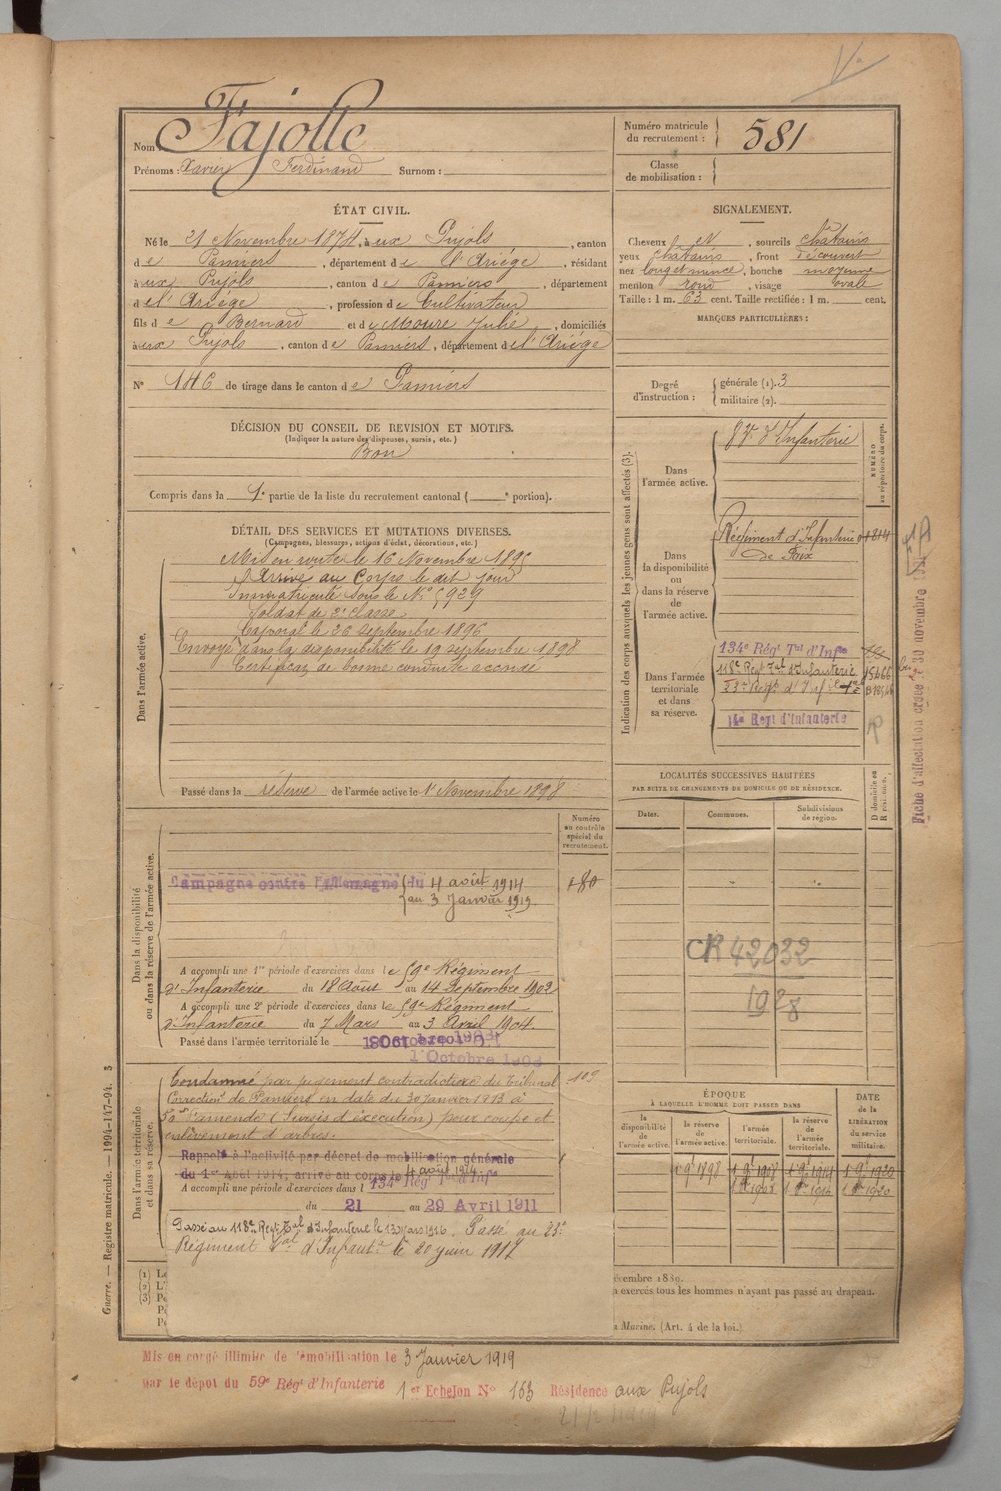 Nom : Fajolle
Prénoms : Xavier Ferdinand Surnom :
Numéro matricule du recrutement : 581
Classe de mobilisation :
ÉTAT CIVIL.
Né le 21 Novembre 1874, à ux Pujols, canton
d e Pamiers, département d e l'Ariège, résidant
à ux Pujols, canton d e Pamiers, département
d e l'Ariège, profession d e Cultivateur
fils d e Bernard et d e Moure Julie, domiciliés
à ux Pujols, canton d e Pamiers, département d e l'Ariège
N° 146 de tirage dans le canton d e Pamiers
SIGNALEMENT.
Cheveux et, sourcils châtains
yeux châtains, front découvert
nez long et mince, bouche moyenne
menton rond, visage ovale
Taille : 1 m. 63 cent. Taille rectifiée : 1 m. cent.
MARQUES PARTICULIÈRES :
Degré d'instruction : générale (1). 3
militaire (2).
DÉCISION DU CONSEIL DE REVISION ET MOTIFS.
(Indiquer la nature des dispenses, sursis, etc.)
Bon
Compris dans la 1e partie de la liste du recrutement cantonal ( e portion).
DÉTAIL DES SERVICES ET MUTATIONS DIVERSES.
(Campagnes, blessures, actions d'éclat, décorations, etc.)
Dans l'armée active.
Mis en route le 16 Novembre 1895
Arrivé au Corps le dit jour
Immatriculé sous le N° 5929
Soldat de 2e classe
Caporal le 26 septembre 1896
Envoyé dans la disponibilité le 19 septembre 1898
Certificat de bonne conduite accordé
Passé dans la réserve de l'armée active le 1 Novembre 1898
Indication des corps auxquels les jeunes gens sont affectés (3).
NUMÉRO au répertoire du corps.
Dans l'armée active.
d'Infanterie
Dans la disponibilité ou dans la réserve de l'armée active.
Régiment d'Infanterie 1814
de Foix
Dans l'armée territoriale et dans sa réserve.
134e Régt Tal d'Infie
118e Regt Tal d'Infanterie 15466
14e Regt d'Infanterie
R
Fiche d'affectation créée le 30 novembre
LOCALITÉS SUCCESSIVES HABITÉES
PAR SUITE DE CHANGEMENTS DE DOMICILE OU DE RÉSIDENCE.
Dates. Communes. Subdivisions de région. D domicile ou R résidence.
CR 42032
1928
Dans la disponibilité ou dans la réserve de l'armée active.
Numéro au contrôle spécial du recrutement.
Campagne contre l'Allemagne du 4 août 1914
au 3 Janvier 1919.
180
A accompli une 1re période d'exercices dans le 59e Régiment
d'Infanterie du 18 Aout au 14 Septembre 1902
A accompli une 2e période d'exercices dans le 59e Régiment
d'Infanterie du 7 Mars au 3 Avril 1904.
Passé dans l'armée territoriale le
1 Octobre 1908
Dans l'armée territoriale et dans sa réserve.
Condamné par jugement contradictoire du Tribunal
Correctionel de Pamiers en date du 30 Janvier 1913 à
50f d'amende (Sursis d'exécution) pour coupe et
enlèvement d'arbres.
109
Rappelé à l'activité par décret de mobilisation générale
du 1er Août 1914, arrivé au corps le 4 août 1914
A accompli une période d'exercices dans l 134e Régt Tal d'Infie
du 21 au 29 Avril 1911
Passé au 118e Regt Tal d'Infanterie le 13 Mars 1916. Passé au 23e
Régiment Tal d'Infantie le 20 juin 1917
ÉPOQUE
À LAQUELLE L'HOMME DOIT PASSER DANS
la disponibilité de l'armée active. la réserve de l'armée active. l'armée territoriale. la réserve de l'armée territoriale.
DATE de la LIBÉRATION du service militaire.
Guerre. — Registre matricule. — 1994-147-94. 3
(1) Le
(2) L'
(3) Pe
décembre 1889.
a exercés tous les hommes n'ayant pas passé au drapeau.
a Marine. (Art. 4 de la loi.)
Mis en congé illimité de démobilisation le 3 Janvier 1919
par le dépot du 59e Régt d'Infanterie 1er Echelon N° 163 Résidence aux Pujols